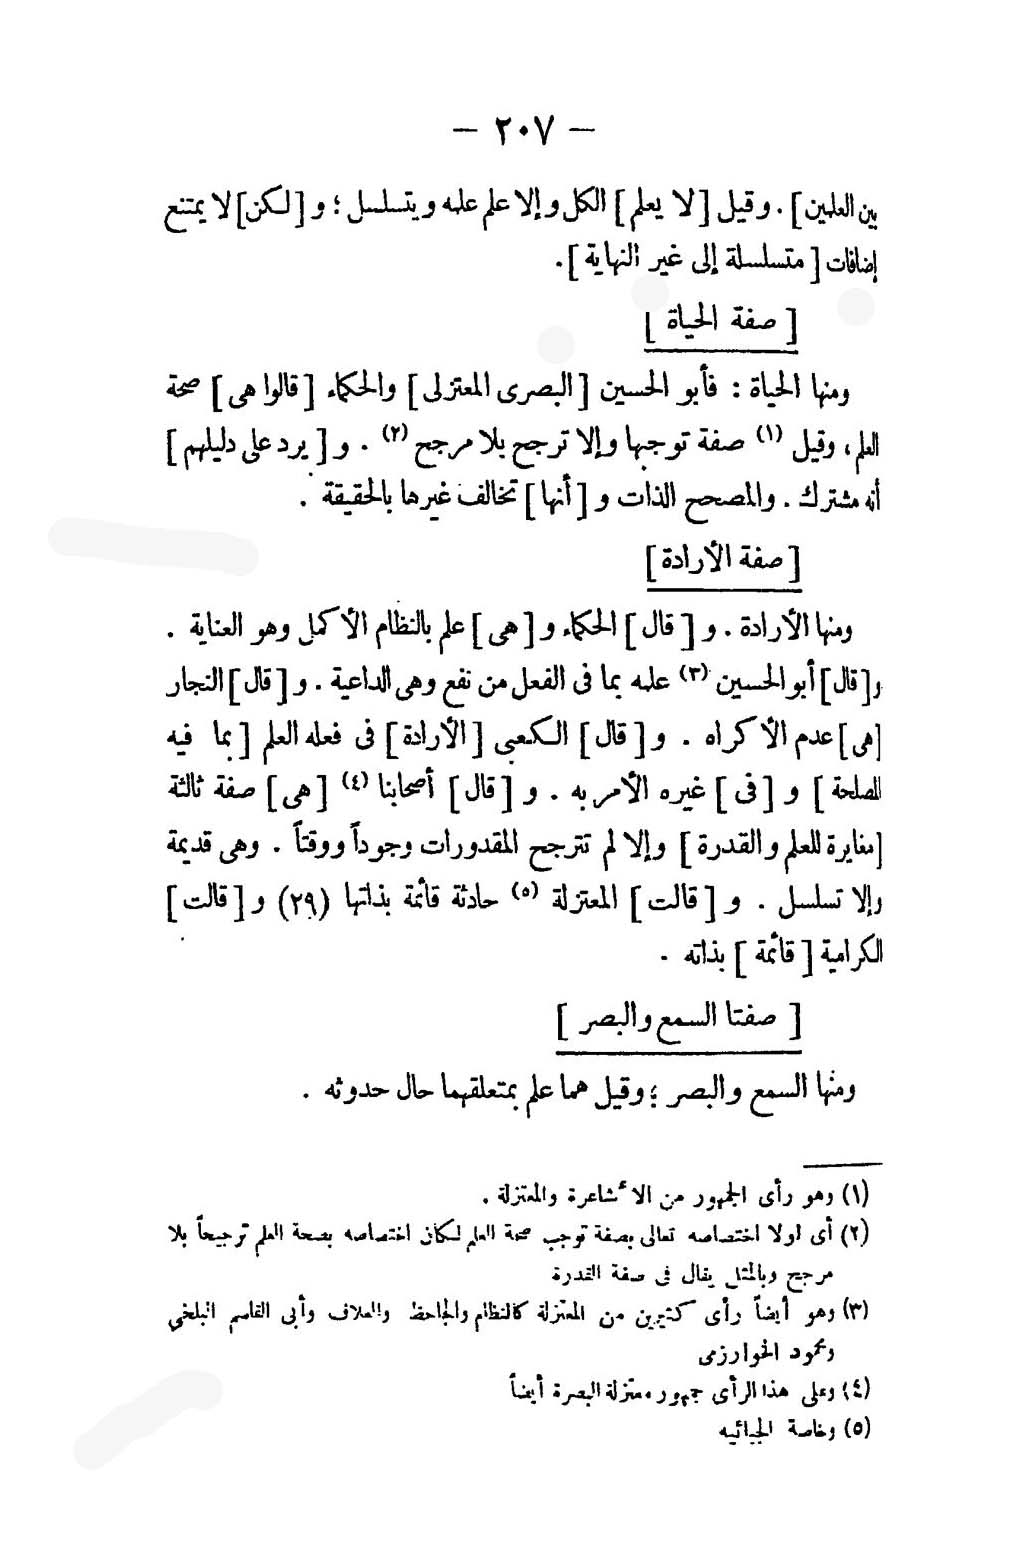 — ٢٠٧ —
بين العلمين] . وقيل [لا يعلم] الكل وإلا علم علمه ويتسلسل ؛ و [لكن] لا يمتنع
إضافات [متسلسلة إلى غير النهاية] .
[صفة الحياة]
ومنها الحياة : فأبو الحسين [البصرى المعتزلى] والحكماء [قالوا هى] صحة
العلم ، وقيل (١) صفة توجبها وإلا ترجح بلا مرجح (٢) . و [يرد على دليلهم]
أنه مشترك . والمصحح الذات و [أنها] تخالف غيرها بالحقيقة .
[صفة الأرادة]
ومنها الأرادة . و [قال] الحكماء و [هى] علم بالنظام الأكمل وهو العناية .
و[قال] أبو الحسين (٣) علمه بما فى الفعل من نفع وهى الداعية . و [قال] النجار
[هى] عدم الأكراه . و [قال] الكعبى [الأرادة] فى فعله العلم [بما فيه
المصلحة] و [فى] غيره الأمر به . و [قال] أصحابنا (٤) [هى] صفة ثالثة
[مغايرة للعلم والقدرة] وإلا لم تترجح المقدورات وجوداً ووقتاً . وهى قديمة
وإلا تسلسل . و [قالت] المعتزلة (٥) حادثة قائمة بذاتها (٢٩) و [قالت]
الكرامية [قائمة] بذاته .
[صفتا السمع والبصر]
ومنها السمع والبصر ؛ وقيل هما علم بمتعلقهما حال حدوثه .
(١) وهو رأى الجمهور من الأشاعرة والمعتزلة .
(٢) أى لولا اختصاصه تعالى بصفة توجب صحة العلم لكان اختصاصه بصحة العلم ترجيحاً بلا
مرجح وبالمثل يقال فى صفة القدرة
(٣) وهو أيضاً رأى كثيرين من المعتزلة كالنظام والجاحظ والعلاف وأبى القاسم البلخى
ومحمود الخوارزمى
(٤) وعلى هذا الرأى جمهور معتزلة البصرة أيضاً
(٥) وخاصة الجبائيه